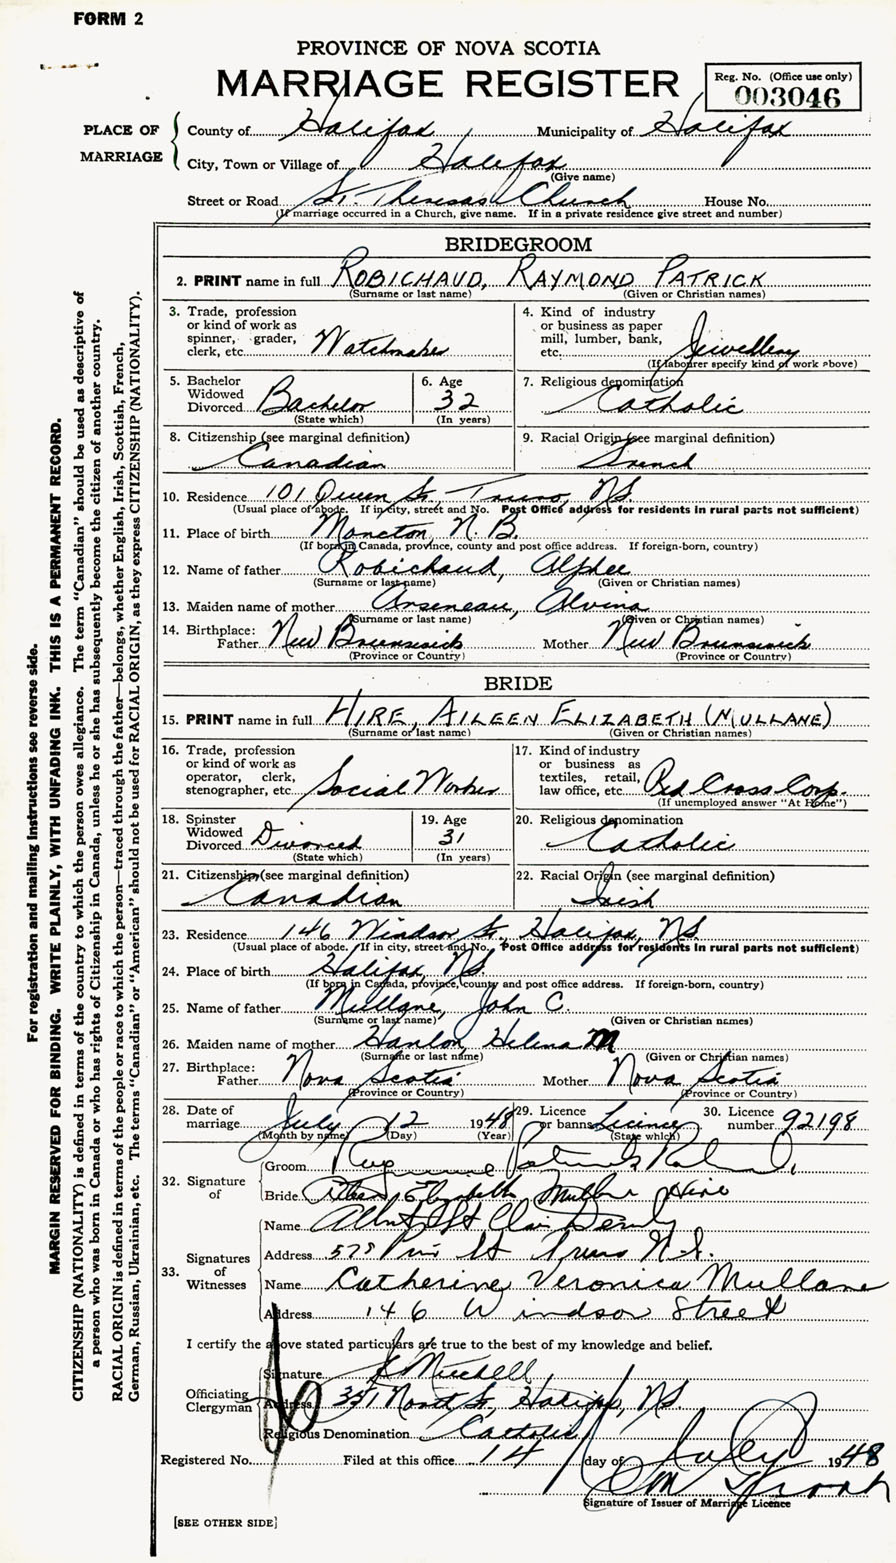 FORM 2
PROVINCE OF NOVA SCOTIA
MARRIAGE REGISTER
Reg. No. (Office use only)
003046
PLACE OF MARRIAGE
County of Halifax Municipality of Halifax
City, Town or Village of Halifax
(Give name)
Street or Road St. Theresas Church House No.
(If marriage occurred in a Church, give name. If in a private residence give street and number)
BRIDEGROOM
2. PRINT name in full ROBICHAUD, RAYMOND PATRICK
(Surname or last name) (Given or Christian names)
3. Trade, profession or kind of work as spinner, grader, clerk, etc. Watchmaker
4. Kind of industry or business as paper mill, lumber, bank, etc. Jewellery
(If labourer specify kind of work above)
5. Bachelor Widowed Divorced Bachelor
(State which)
6. Age 32
(In years)
7. Religious denomination
Catholic
8. Citizenship (see marginal definition)
Canadian
9. Racial Origin (see marginal definition)
French
10. Residence 101 Queen St. Truro, NS.
(Usual place of abode. If in city, street and No. Post Office address for residents in rural parts not sufficient)
11. Place of birth Moncton, N.B.
(If born in Canada, province, county and post office address. If foreign-born, country)
12. Name of father Robichaud, Alphee
(Surname or last name) (Given or Christian names)
13. Maiden name of mother Arseneau, Alvina
(Surname or last name) (Given or Christian names)
14. Birthplace: Father New Brunswick Mother New Brunswick
(Province or Country) (Province or Country)
BRIDE
15. PRINT name in full HIRE, AILEEN ELIZABETH (MULLANE)
(Surname or last name) (Given or Christian names)
16. Trade, profession or kind of work as operator, clerk, stenographer, etc. Social Worker
17. Kind of industry or business as textiles, retail, law office, etc. Red Cross Corp.
(If unemployed answer "At Home")
18. Spinster Widowed Divorced Divorced
(State which)
19. Age 31
(In years)
20. Religious denomination
Catholic
21. Citizenship (see marginal definition)
Canadian
22. Racial Origin (see marginal definition)
Irish
23. Residence 146 Windsor St., Halifax, NS
(Usual place of abode. If in city, street and No. Post Office address for residents in rural parts not sufficient)
24. Place of birth Halifax, NS.
(If born in Canada, province, county and post office address. If foreign-born, country)
25. Name of father Mullane, John C.
(Surname or last name) (Given or Christian names)
26. Maiden name of mother Hanlon, Helena M
(Surname or last name) (Given or Christian names)
27. Birthplace: Father Nova Scotia Mother Nova Scotia
(Province or Country) (Province or Country)
28. Date of marriage July 12 1948
(Month by name) (Day) (Year)
29. Licence or banns Licence
(State which)
30. Licence number 92198
32. Signature of
Groom Raymond Patrick Robichaud
Bride Aileen Elizabeth Mullane Hire
33. Signatures of Witnesses
Name Albert St Clair
Address St Truro N.S.
Name Catherine Veronica Mullane
Address 146 Windsor Street
I certify the above stated particulars are true to the best of my knowledge and belief.
Officiating Clergyman
Signature Mitchell
Address Halifax, NS.
Religious Denomination Catholic
Registered No. Filed at this office 14 day of July 1948
Signature of Issuer of Marriage Licence
[SEE OTHER SIDE]
For registration and mailing instructions see reverse side.
MARGIN RESERVED FOR BINDING. WRITE PLAINLY, WITH UNFADING INK. THIS IS A PERMANENT RECORD.
CITIZENSHIP (NATIONALITY) is defined in terms of the country to which the person owes allegiance. The term "Canadian" should be used as descriptive of
a person who was born in Canada or who has rights of Citizenship in Canada, unless he or she has subsequently become the citizen of another country.
RACIAL ORIGIN is defined in terms of the people or race to which the person—traced through the father—belongs, whether English, Irish, Scottish, French,
German, Russian, Ukrainian, etc. The terms "Canadian" or "American" should not be used for RACIAL ORIGIN, as they express CITIZENSHIP (NATIONALITY).